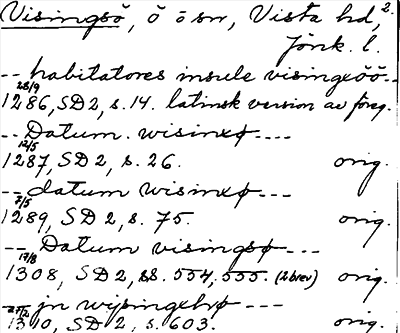 Visingsö, Ö ö sn, Vista hd, 2.
Jönk. l.
-- habitatores insule visingxöö--
28/9
1286, SD 2, s. 14. latinsk version av föreg.
-- Datum. wisinxø ----
12/5
1287, SD 2, s. 26. orig.
-- datum wisinxø ---
7/5
1289, SD 2, s. 75. orig.
-- Datum visingsø ---
17/8
1308, SD 2, ss. 554, 555. (2 brev) orig.
-- jn wisingehø ---
1310, SD 2, s. 603. orig.